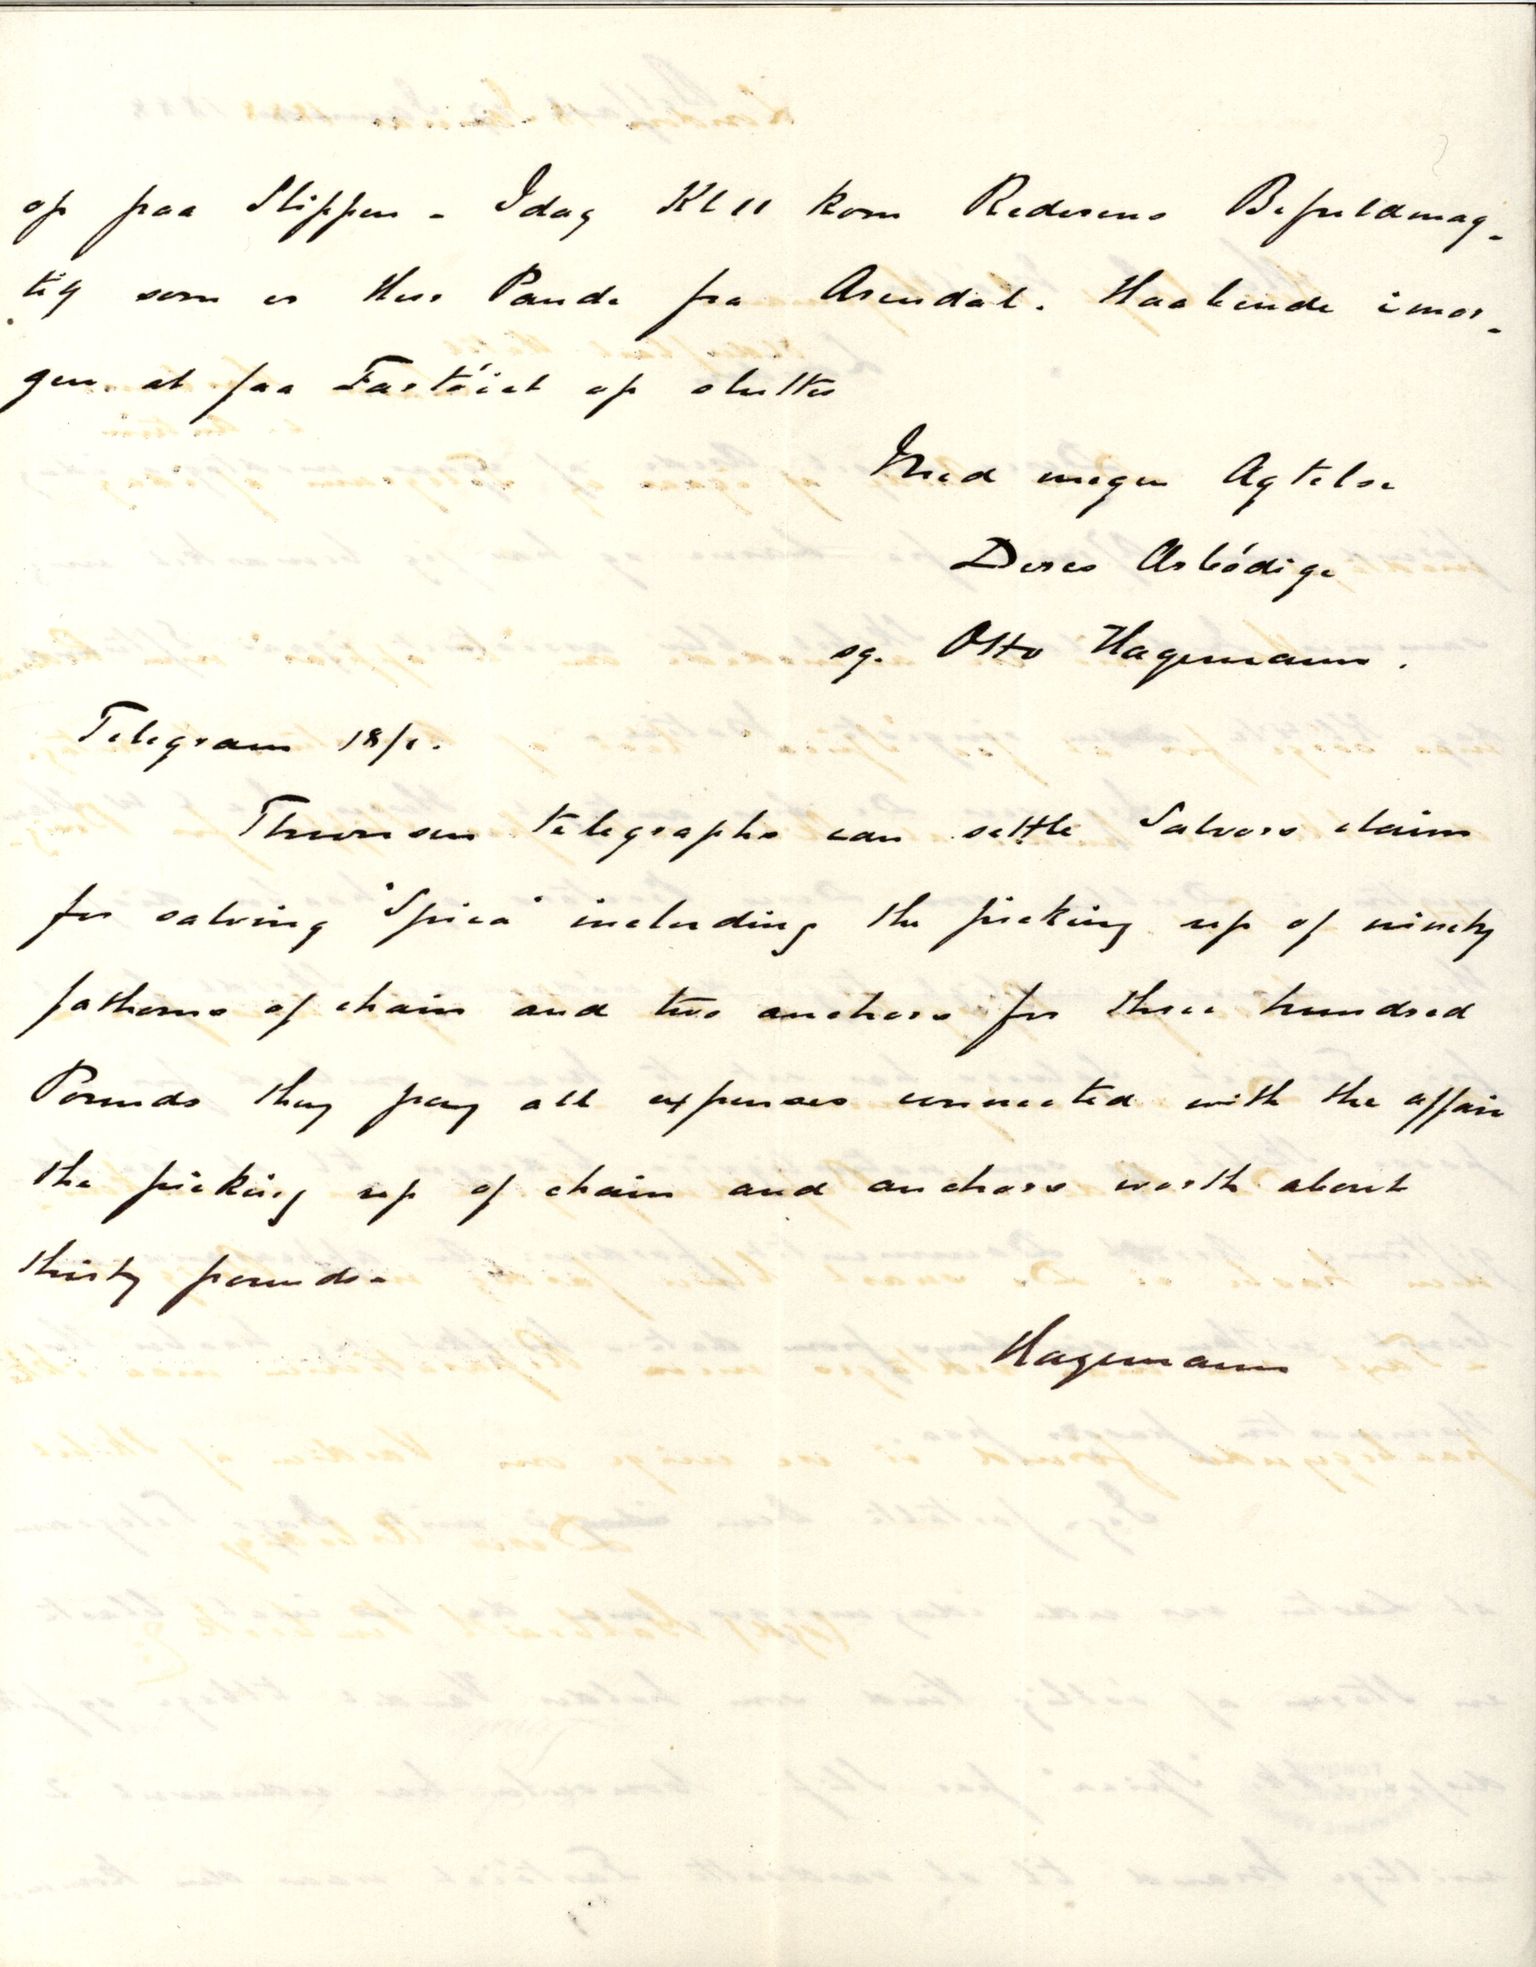 op paa Slippen - Idag Kl 11 kom Rederens Befuldmæg-
tig som er Herr Pande fra Arendal. Haabende imor-
gen at faa Fartöiet op slutter
Med megen Agtelse
Deres Ærbödige
sg. Otto Hagemann.
Telegram 18/1.
Thomsen telegraphs can settle Salvors claim
for salving "Spica" including the picking up of ninety
fathoms of chain and two anchors for three hundred
Pounds they pay all expenses connected with the affair
the picking up of chain and anchors worth about
thirty pounds-
Hagemann